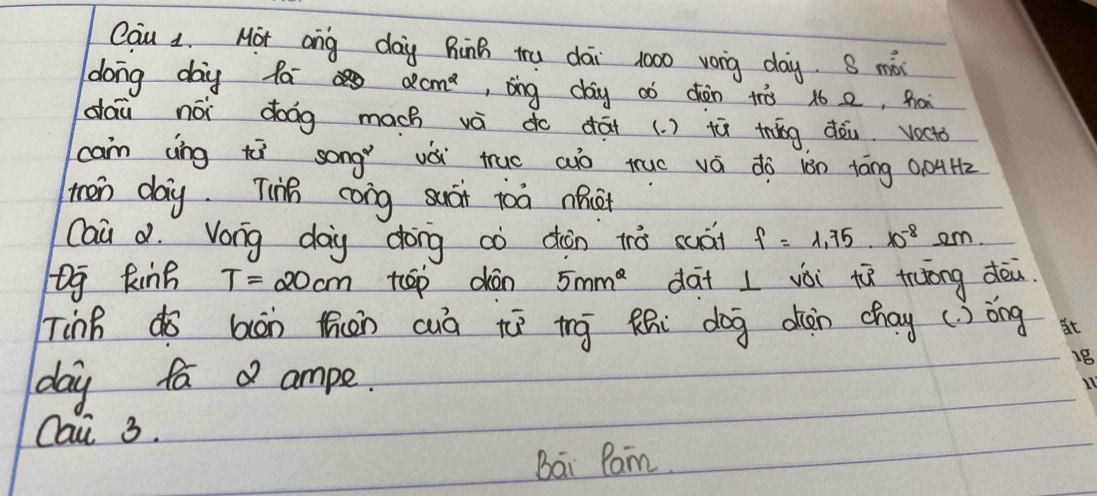 Câu 1. Một ống dây hình trụ dài 1000 vòng dây. S mỗi
dòng dây là 2cm², ống dây có điện trở 16 Ω, hai
đầu nối đoảg mạch và đc đặt (.) từ trường đều. Vectơ
cảm ứng từ song² với trục của trục và độ lớn tăng 0,04Hz
trên dây. Tính công suất toả nhiệt
Câu 2. Vòng dây đồng có điện trở suất ρ = 1,75.10⁻⁸ Ωm.
Đg kính T = 20cm tiếp diện 5mm² đặt ⊥ với từ trường đều.
Tính độ biến thiên của từ trg khi dòg điện chạy (.) ống
dây là 2 ampe.
Câu 3.
Bài làm.
ất
ng